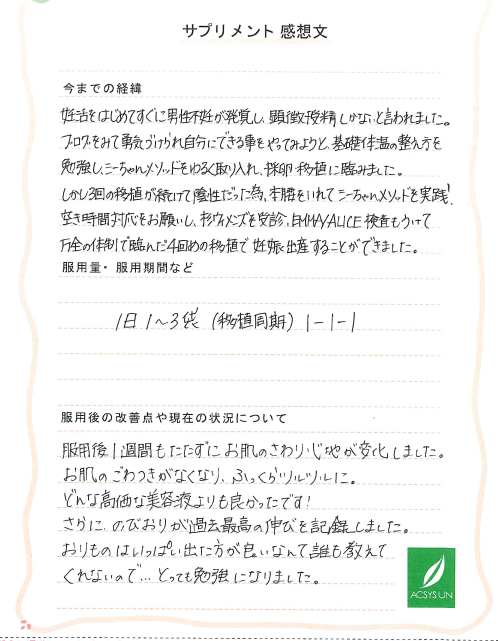 サプリメント 感想文
今までの経緯
妊活をはじめてすぐに男性不妊が発覚し、顕微授精しかないと言われました。
ブログをみて勇気づけられ自分にできる事をやってみようと、基礎体温の整え方を
勉強し、シーちゃんメソッドをゆるく取り入れ、採卵・移植に臨みました。
しかし3回の移植が続けて陰性だった為、本腰をいれてシーちゃんメソッドを実践!
空き時間対応をお願いし、杉ウイメンズを受診、EMMA/ALICE検査もうけて
万全の体制で臨んだ4回めの移植で妊娠出産することができました。
服用量・服用期間など
1日 1〜3袋 (移植周期) 1-1-1
服用後の改善点や現在の状況について
服用後1週間もたたずにお肌のさわり心地が変化しました。
お肌のごわつきがなくなり、ふっくらツルツルに。
どんな高価な美容液よりも良かったです!
さらに、のびおりが過去最高の伸びを記録しました。
おりものはいっぱい出た方が良いなんて誰も教えて
くれないので…とっても勉強になりました。
ACSYSUN